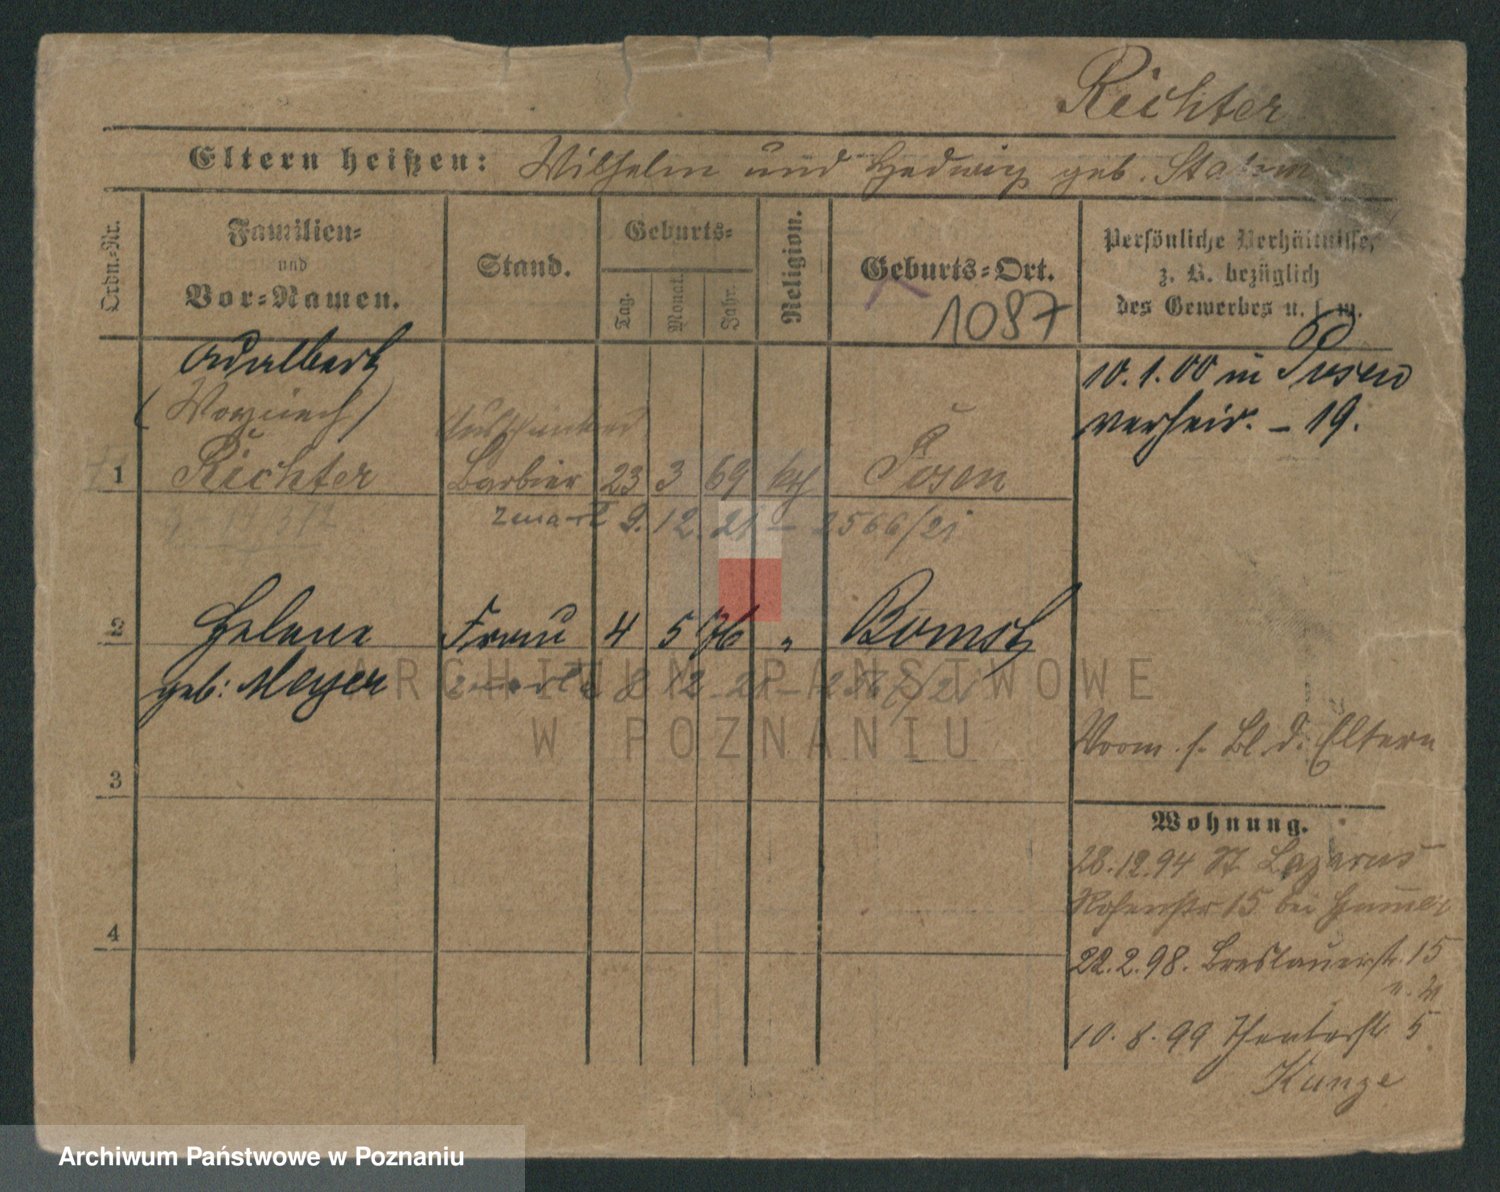 Richter
Eltern heißen: Wilhelm und Hedwig geb.
Ordn.-Nr.
Familien-
und
Vor-Namen.
Stand.
Geburts-
Tag.
Monat.
Jahr.
Religion.
Geburts-Ort.
1087
Persönliche Verhältnisse,
z. B. bezüglich
des Gewerbes u. s. w.
Adalbert
(Woyciech)
1 Richter Barbier 23 3 69 kth Posen
zmarł 9. 12. 21 - 2566/21
10. 1. 00 in Posen
verheir. - 19.
2 Helene Frau 4 5 76 " Bomst
geb: Meyer zmarła 8 12 21
3
Vorm. s. Bl. d. Eltern
Wohnung.
28.12.94 St. Lazarus
15 bei
4
22.2.98. Breslauerstr. 15
10. 8. 99 Theaterstr 5
Kunze
ARCHIWUM PAŃSTWOWE
W POZNANIU
Archiwum Państwowe w Poznaniu